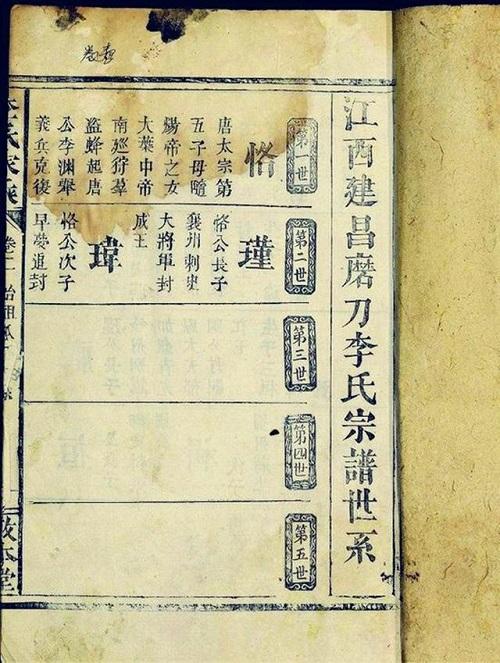 江西建昌磨刀李氏宗譜世系
第一世
恪
唐太宗第
五子母隋
煬帝之女
大業中帝
南巡狩羣
盜蜂起唐
公李淵舉
義兵克復
第二世
瑾
恪公長子
襄州刺史
大將軍封
成王
瑋
恪公次子
早薨追封
第三世
第四世
第五世